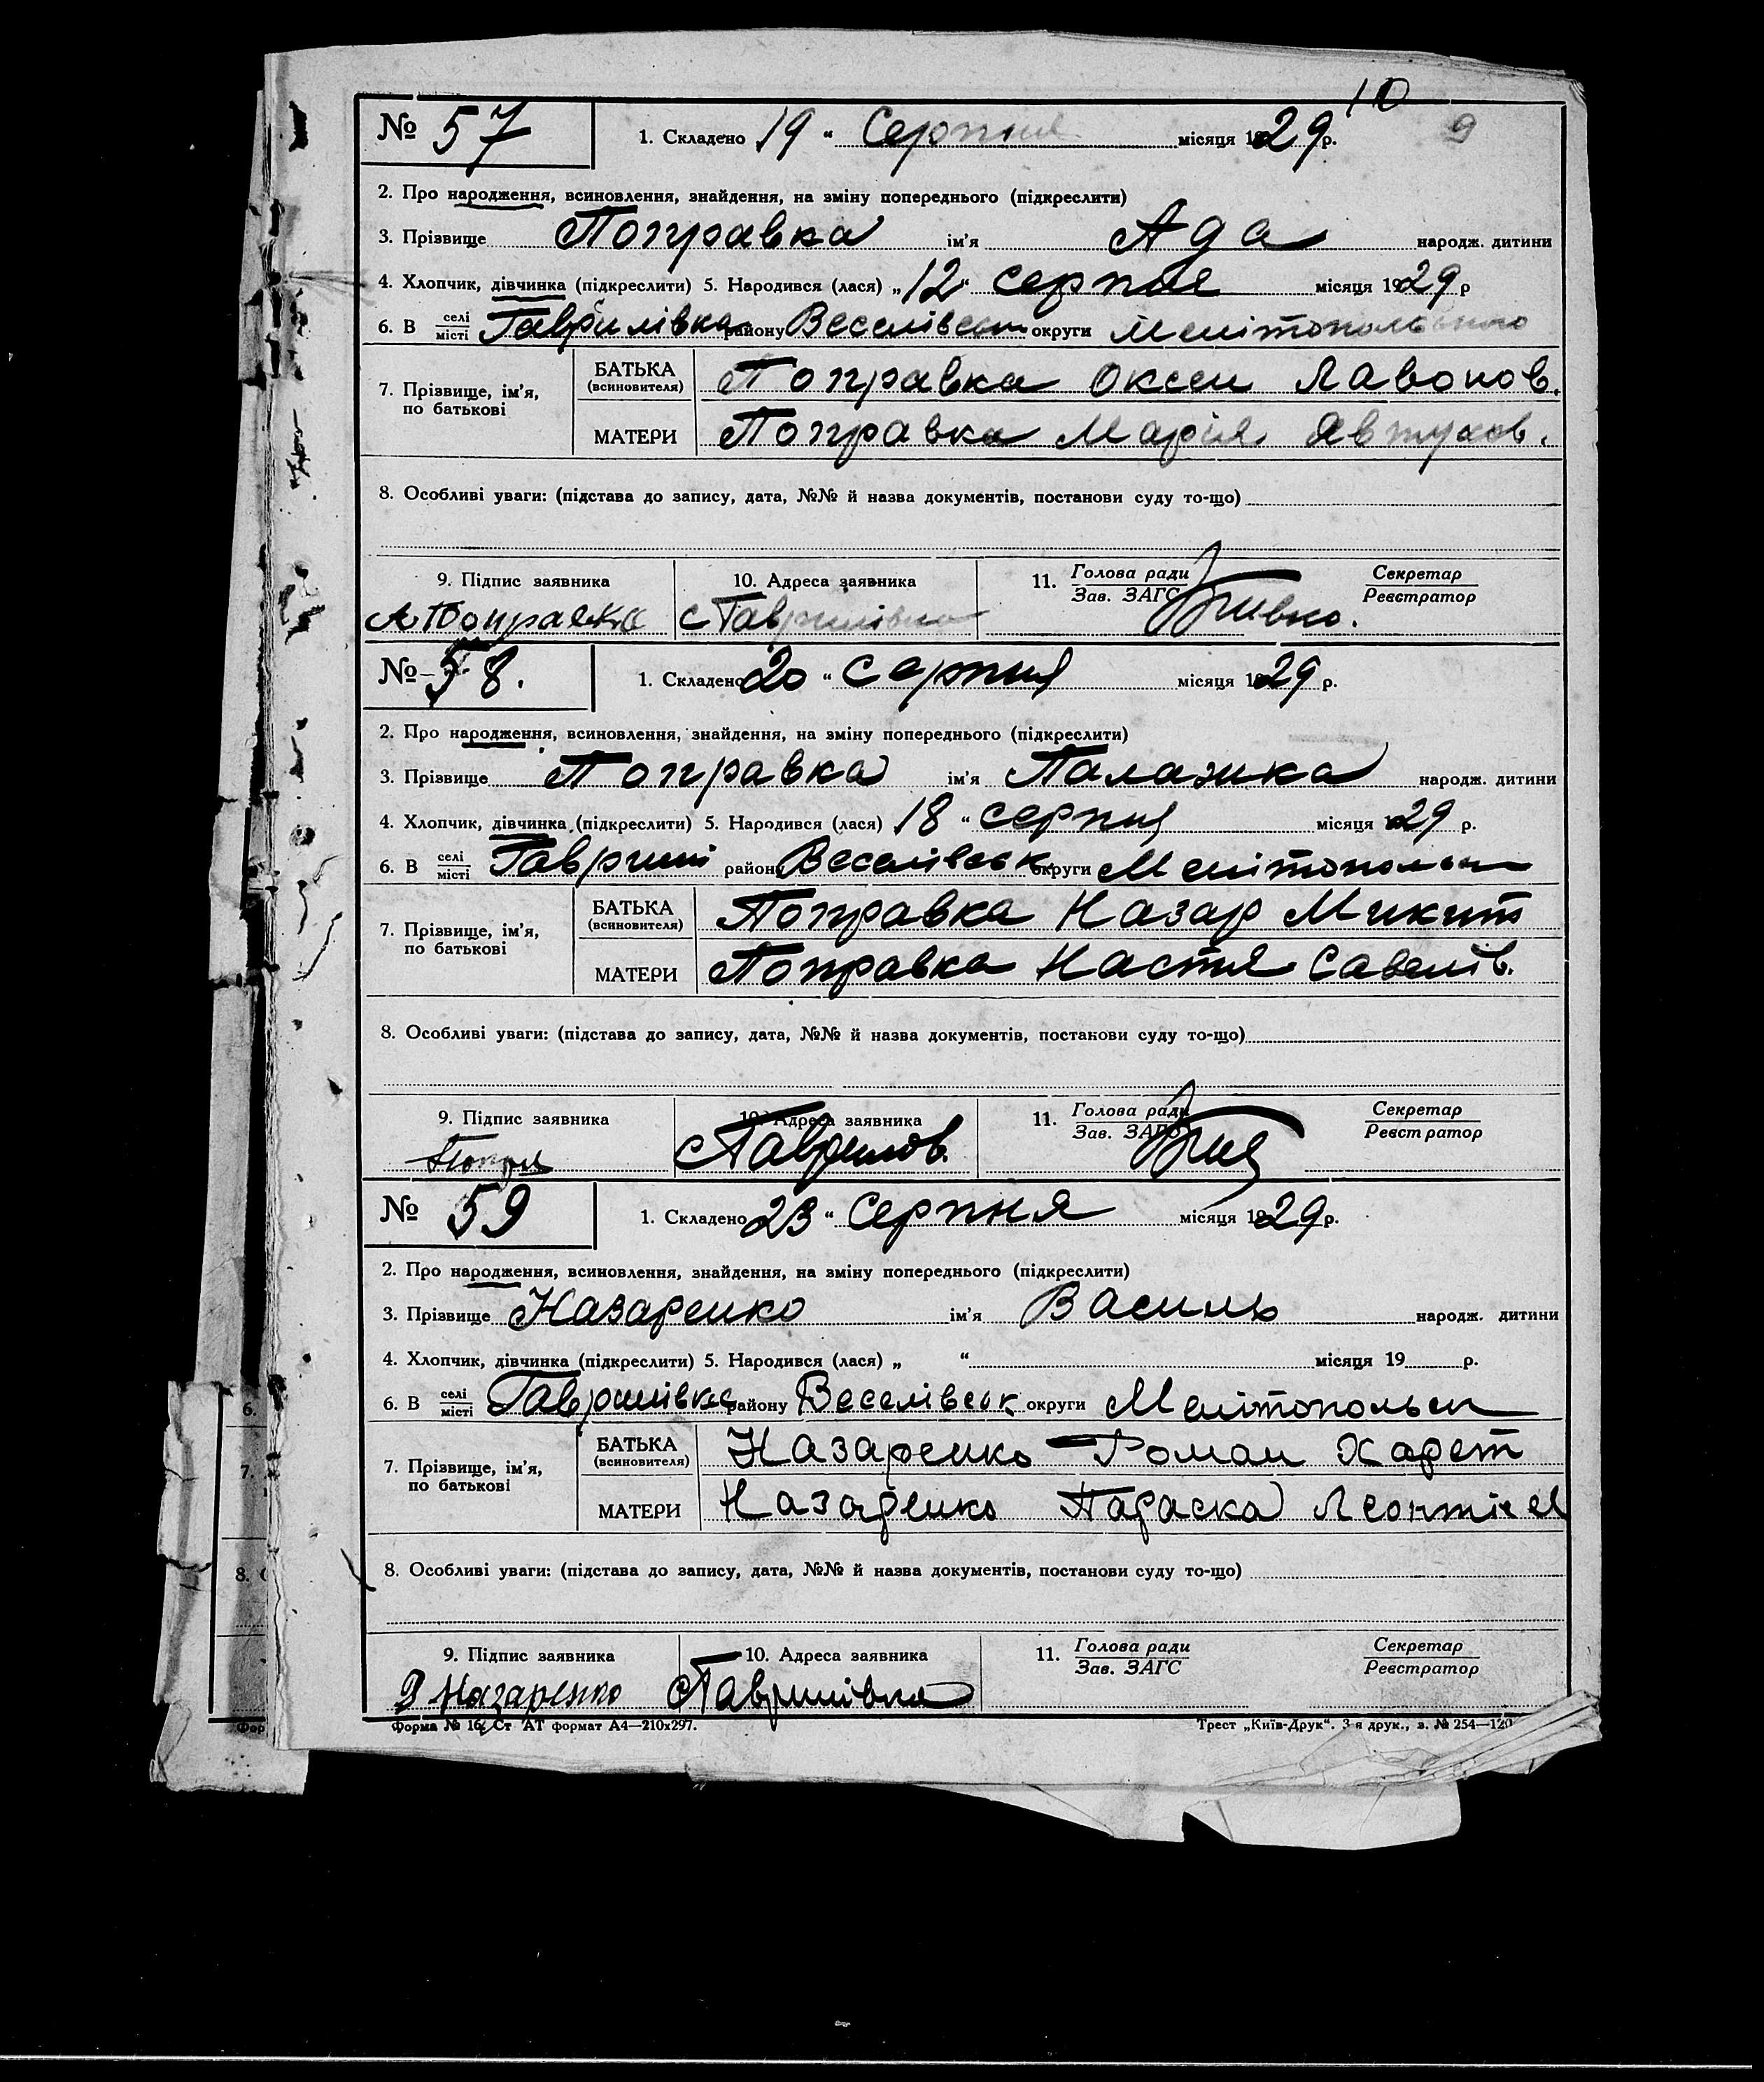 10
9
№ 57 1. Складено 19 " Серпня місяця 1929 р.
2. Про народження, всиновлення, знайдення, на зміну попереднього (підкреслити)
3. Прізвище Поправка ім'я Ада народж. дитини
4. Хлопчик, дівчинка (підкреслити) 5. Народився (лася) „12" серпня місяця 1929 р
6. В селі/місті Гаврилівка району Веселівськ округи Мелітопольського
7. Прізвище, ім'я, по батькові
БАТЬКА (всиновителя) Поправка Оксен Лавонов.
МАТЕРИ Поправка Марія Явтухов.
8. Особливі уваги: (підстава до запису, дата, №№ й назва документів, постанови суду то-що)
9. Підпис заявника 10. Адреса заявника 11. Голова ради/Зав. ЗАГС Секретар/Реєстратор
А Поправка с Гаврилівка
№ 58. 1. Складено 20 " серпня місяця 1929 р.
2. Про народження, всиновлення, знайдення, на зміну попереднього (підкреслити)
3. Прізвище Поправка ім'я Палажка народж. дитини
4. Хлопчик, дівчинка (підкреслити) 5. Народився (лася) 18 " серпня місяця 1929 р.
6. В селі/місті Гаврилі району Веселівськ округи Мелітопольск
7. Прізвище, ім'я, по батькові
БАТЬКА (всиновителя) Поправка Назар Микит
МАТЕРИ Поправка Настя Савелів.
8. Особливі уваги: (підстава до запису, дата, №№ й назва документів, постанови суду то-що)
9. Підпис заявника 10. Адреса заявника 11. Голова ради/Зав. ЗАГС Секретар/Реєстратор
с Гаврилов.
№ 59 1. Складено 23 " серпня місяця 1929 р.
2. Про народження, всиновлення, знайдення, на зміну попереднього (підкреслити)
3. Прізвище Назаренко ім'я Василь народж. дитини
4. Хлопчик, дівчинка (підкреслити) 5. Народився (лася) „ " місяця 19 р.
6. В селі/місті Гаврилівка району Веселівськ округи Мелітопольск
7. Прізвище, ім'я, по батькові
БАТЬКА (всиновителя) Назаренко Роман Харет
МАТЕРИ Назаренко Параска Леонтіє
8. Особливі уваги: (підстава до запису, дата, №№ й назва документів, постанови суду то-що)
9. Підпис заявника 10. Адреса заявника 11. Голова ради/Зав. ЗАГС Секретар/Реєстратор
Назаренко с Гаврилівка
Форма № 16, Ст АТ формат А4—210х297. Трест „Київ-Друк". 3-я друк., з. № 254—120